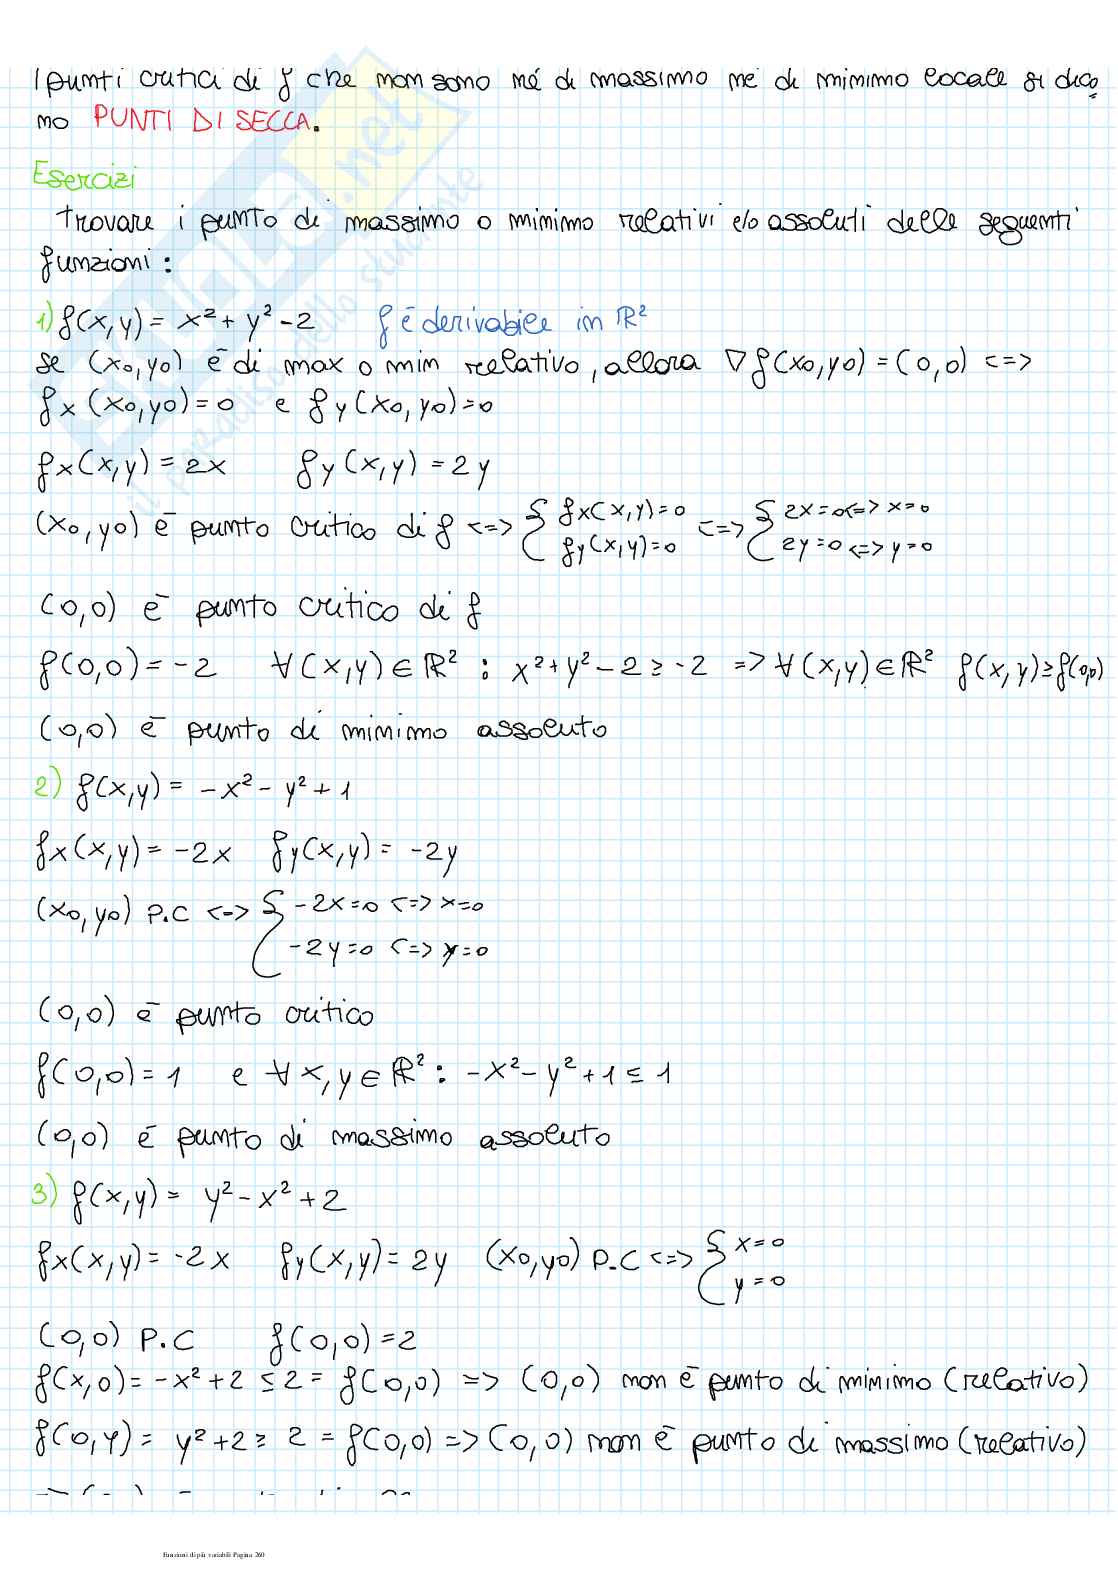 I punti critici di f che non sono né di massimo né di minimo locale si dico
no PUNTI DI SECCA.
Esercizi
Trovare i punto di massimo o minimo relativi e/o assoluti delle seguenti
funzioni:
1) f(x,y) = x² + y² - 2 f è derivabile in ℝ²
se (x0,y0) è di max o min relativo, allora ∇f(x0,y0) = (0,0) <=>
fx(x0,y0)=0 e fy(x0,y0)=0
fx(x,y) = 2x fy(x,y) = 2y
(x0,y0) è punto critico di f <=> { fx(x,y)=0 <=> { 2x=0 <=> x=0
fy(x,y)=0 2y=0 <=> y=0
(0,0) è punto critico di f
f(0,0) = -2 ∀(x,y) ∈ ℝ² : x² + y² - 2 ≥ -2 => ∀(x,y) ∈ ℝ² f(x,y) ≥ f(0,0)
(0,0) è punto di minimo assoluto
2) f(x,y) = -x² - y² + 1
fx(x,y) = -2x fy(x,y) = -2y
(x0,y0) P.C <=> { -2x=0 <=> x=0
-2y=0 <=> y=0
(0,0) è punto critico
f(0,0) = 1 e ∀ x,y ∈ ℝ² : -x² - y² + 1 ≤ 1
(0,0) è punto di massimo assoluto
3) f(x,y) = y² - x² + 2
fx(x,y) = -2x fy(x,y) = 2y (x0,y0) P.C <=> { x=0
y=0
(0,0) P.C f(0,0) = 2
f(x,0) = -x² + 2 ≤ 2 = f(0,0) => (0,0) non è punto di minimo (relativo)
f(0,y) = y² + 2 ≥ 2 = f(0,0) => (0,0) non è punto di massimo (relativo)
Funzioni di più variabili Pagina 260
.net
il paradiso dello studente